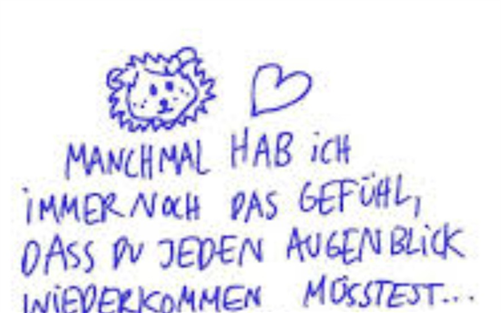 MANCHMAL HAB iCH
iMMER NOCH DAS GEFÜHL,
DASS DU JEDEN AUGENBLiCK
WIEDERKOMMEN MÜSSTEST...